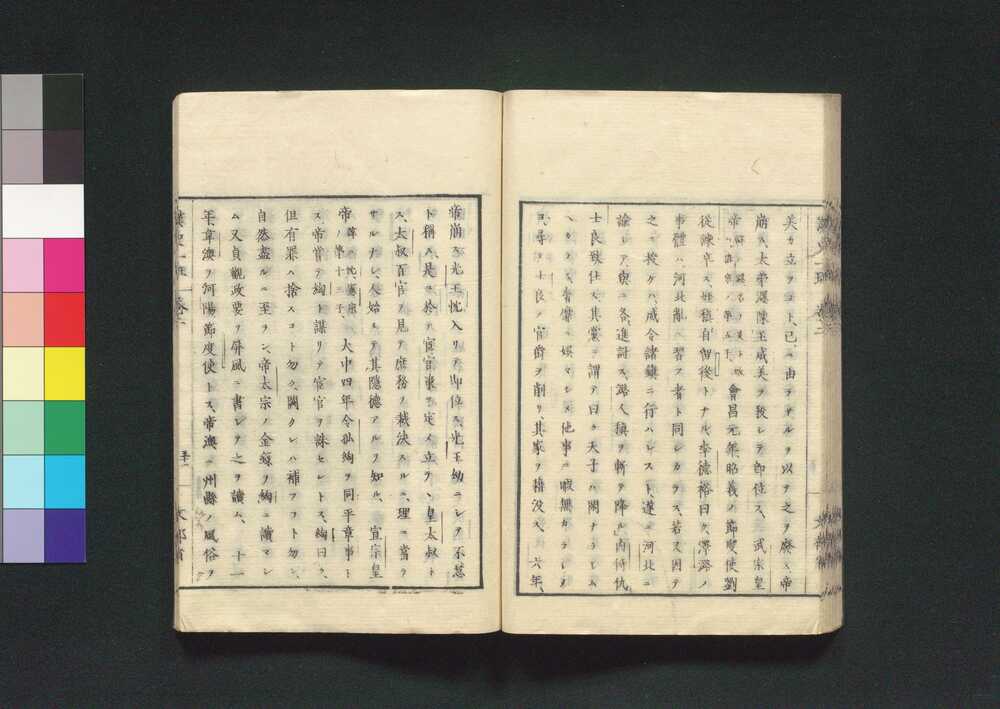 美カ立ヲコト、己ニ由ラサルヲ以テ之ヲ廢ス、帝
崩ス、太弟瀍陳王成美ヲ殺シテ即位ス、武宗皇
帝 會昌元年、昭義ノ節度使劉
從諫卒ス、姪稹自留後トナル、李德裕曰ク、澤潞ノ
事體ハ、河北亂ニ習フ者ト同シカラス、若又因テ
之ニ授ケハ、威令諸鎭ニ行ハレスト、遂ニ河北ニ
諭シテ、與ニ 進討ス、潞人稹ヲ斬テ降ル、内侍仇
士良致仕ス、其黨ニ謂テ曰ク、天子ハ閑ナラシム
ヘカラス、奢靡 娯マシメ他事ニ暇無カラシ
尋テ士良ノ官爵ヲ削リ、其家ヲ籍没ス、 六年、
帝崩ス、光王忱入リテ即位ス、光王幼ニシテ不慧
ト稱ス、是ニ於テ宦官事ヲ定メ立ヲ、皇太叔ト
ス、太叔百官ヲ見テ庶務ヲ裁決スルニ、理ニ當ラ
サルナシ、人始メテ其隱德アルヲ知ル、 宣宗皇
帝 諱ハ忱、憲宗ノ第十三子、 大中四年、令狐綯ヲ同平章事ト
ス、帝嘗テ綯ト謀リテ宦官ヲ誅セントス、綯曰ク、
但有罪ハ捨スコト勿ク、闕クレハ補フコト勿ン、
自然盡ルニ至ラン、帝太宗ノ金鏡ヲ綯ニ讀マシ
ム、又貞觀政要ヲ屏風ニ書シテ之ヲ讀ム、 十一
年、韋澳ヲ河陽節度使トス、帝澳ニ州縣ノ風俗ヲ
漢史一班 卷二
文部省